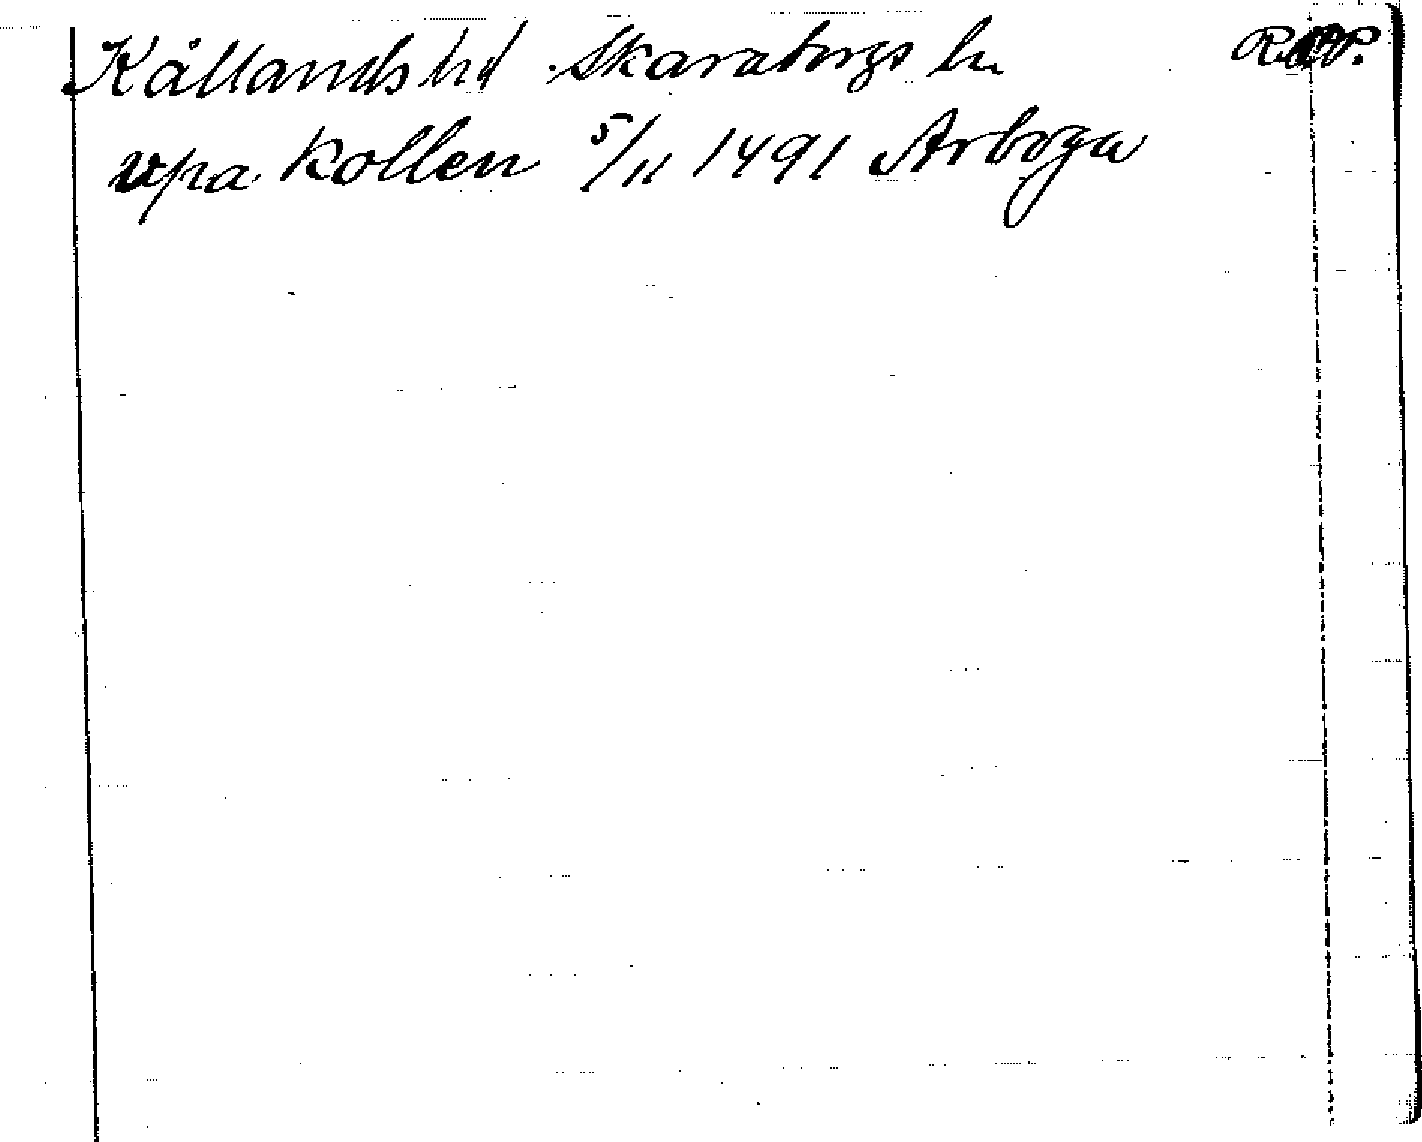 Kållands hd Skaraborgs ln R.A.P.
vpa kollen 5/11 1491 Arboga